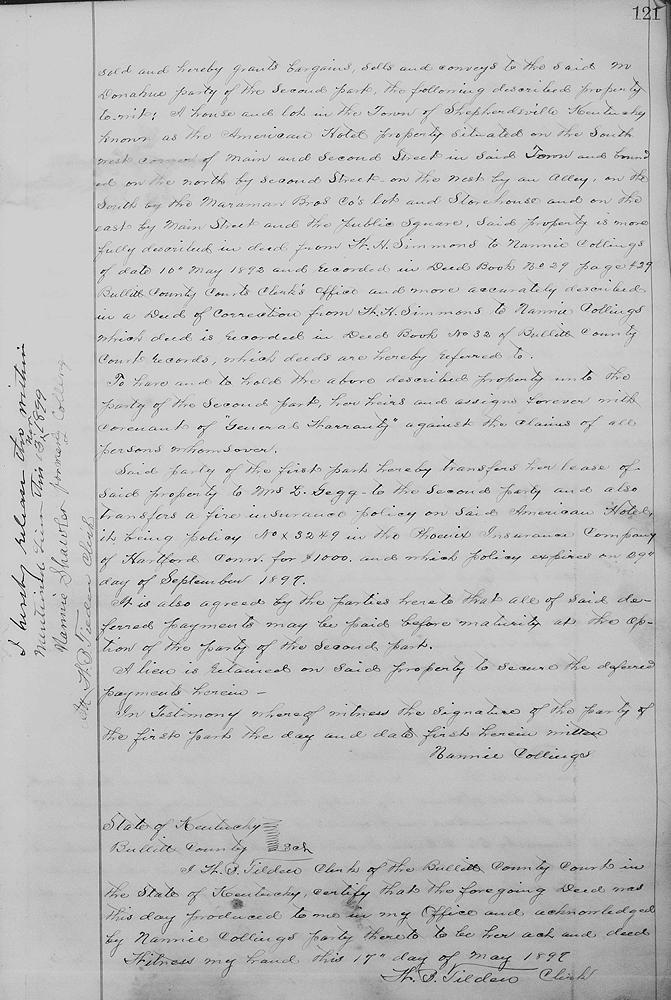 121
sold and hereby grants bargains, sells and conveys to the said M
Donahue party of the second part, the following described property
to-wit: A house and lot in the Town of Shepherdsville Kentucky
known as the American Hotel property situated on the South
west corner of Main and Second Street in said Town and bound
ed on the north by Second Street on the West by an Alley, on the
South by the Maraman Bros Co's lot and Storehouse and on the
east by Main Street and the public Square, Said property is more
fully described in deed from W. H. Simmons to Nannie Collings
of date 10" May 1892 and recorded in Deed Book No 29 page 429
Bullitt County Courts Clerk's Office and more accurately described
in a Deed of Correction from W. H. Simmons to Nannie Collings
which deed is recorded in Deed Book No 32 of Bullitt County
Court records, which deeds are hereby referred to.
To have and to hold the above described property unto the
party of the Second part, her heirs and assigns forever with
covenant of "General Warranty" against the Claims of all
persons whomsover.
Said party of the first part hereby transfers her lease of
said property to Mrs L. Gegg to the Second party and also
transfers a fire insurance policy on said American Hotel,
it being policy No X 3249 in the Phoenix Insurance Company
of Hartford Conn. for $1000. and which policy expires on
day of September 1897.
It is also agreed by the parties hereto that all of said de-
ferred payments may be paid before maturity at the op-
tion of the party of the second part.
A lien is retained on said property to secure the deferred
payments herein -
In Testimony whereof witness the signature of the party of
the first part the day and date first herein written
Nannie Collings
State of Kentucky
Bullitt County Sct
I W. P. Tilden Clerk of the Bullitt County Court in
the State of Kentucky, certify that the foregoing Deed was
this day produced to me in my Office and acknowledged
by Nannie Collings party thereto to be her act and deed
Witness my hand this 17" day of May 1897
W. P. Tilden Clerk
I hereby release the within
mentioned lien This 1899
Nannie Shawler formerly Collings
Att W. P. Tilden Clerk